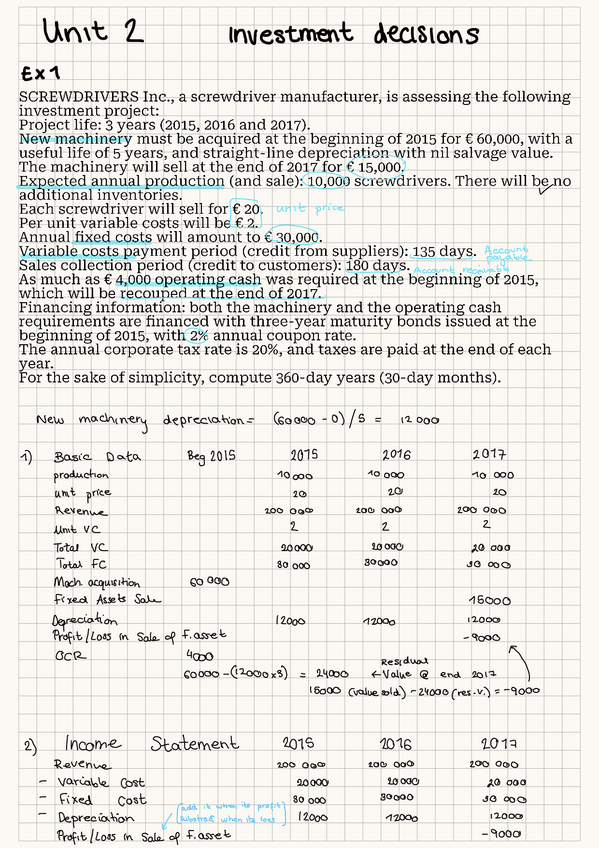 Unit 2 Investment decisions
Ex 1
SCREWDRIVERS Inc., a screwdriver manufacturer, is assessing the following
investment project:
Project life: 3 years (2015, 2016 and 2017).
New machinery must be acquired at the beginning of 2015 for € 60,000, with a
useful life of 5 years, and straight-line depreciation with nil salvage value.
The machinery will sell at the end of 2017 for € 15,000.
Expected annual production (and sale): 10,000 screwdrivers. There will be no
additional inventories.
Each screwdriver will sell for € 20. unit price
Per unit variable costs will be € 2.
Annual fixed costs will amount to € 30,000.
Variable costs payment period (credit from suppliers): 135 days. Account payable
Sales collection period (credit to customers): 180 days. Account receivable
As much as € 4,000 operating cash was required at the beginning of 2015,
which will be recouped at the end of 2017.
Financing information: both the machinery and the operating cash
requirements are financed with three-year maturity bonds issued at the
beginning of 2015, with 2% annual coupon rate.
The annual corporate tax rate is 20%, and taxes are paid at the end of each
year.
For the sake of simplicity, compute 360-day years (30-day months).
New machinery depreciation = (60000 - 0) / 5 = 12 000
1) Basic Data Beg 2015 2015 2016 2017
production 10 000 10 000 10 000
unit price 20 20 20
Revenue 200 000 200 000 200 000
Unit VC 2 2 2
Total VC 20000 20000 20 000
Total FC 30 000 30000 30 000
Mach acquisition 60 000
Fixed Assets Sale 15000
Depreciation 12000 12000 12000
Profit/Loss in Sale of F.asset -9000
OCR 4000
60000 - (12000 x 3) = 24000 ← Residual Value @ end 2017
15000 (value sold) - 24000 (res.v.) = -9000
2) Income Statement 2015 2016 2017
Revenue 200 000 200 000 200 000
- Variable Cost 20000 20000 20 000
- Fixed Cost 30 000 30000 30 000
- Depreciation [add it when its profit/ substract when its loss] 12000 12000 12000
Profit/Loss in Sale of F.asset -9000